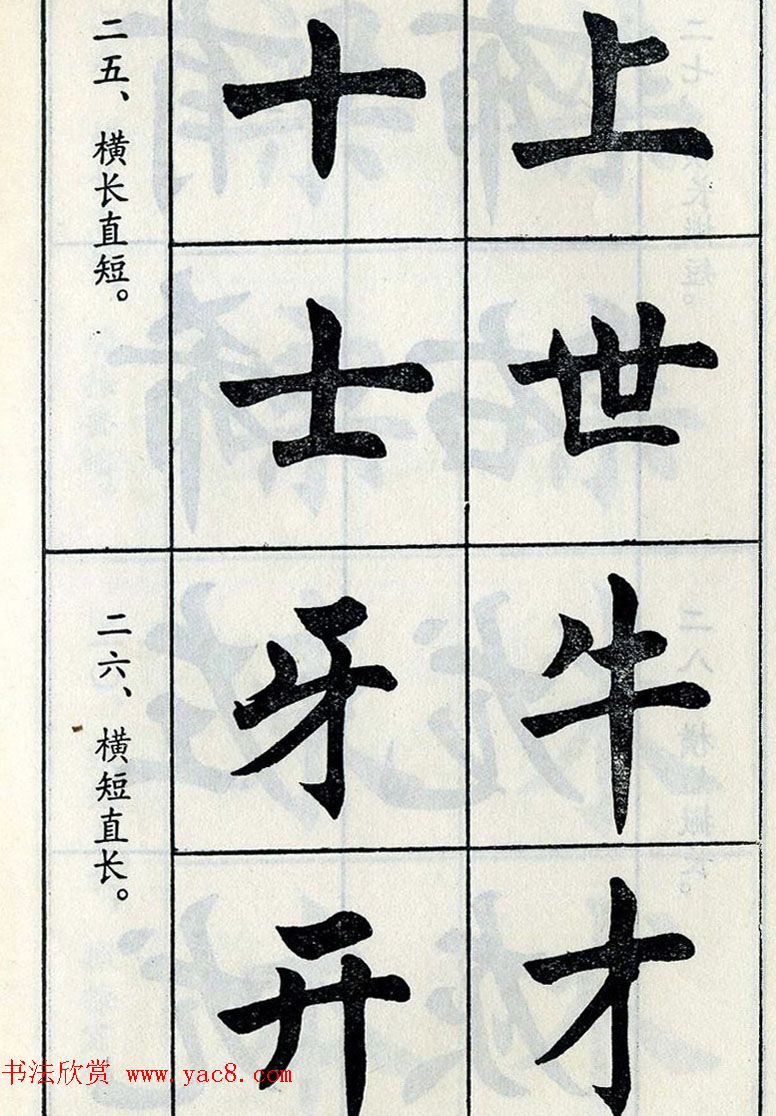 二五、横长直短。
十上
士世
二六、横短直长。
牙牛
开才
书法欣赏 www.yac8.com